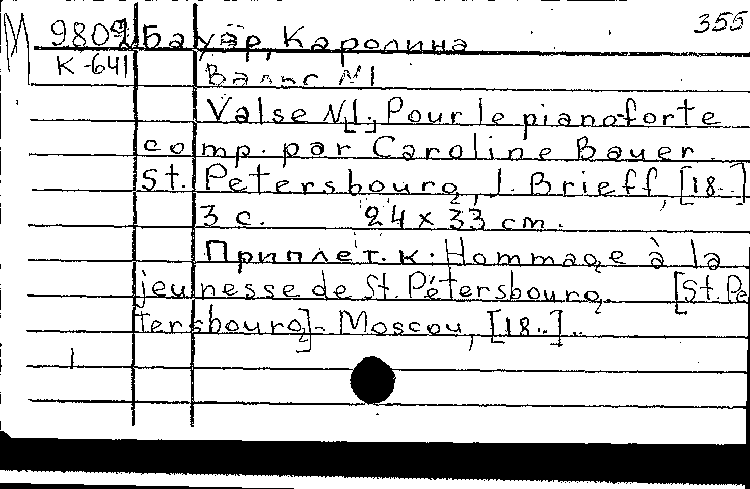 М 9809 Бауэр, Каролина 355
К-641 Вальс №1
Valse N1[.] Pour le pianoforte
comp. par Caroline Bauer.
St. Petersbourg, J. Brieff, [18..]
3 с. 24 x 33 cm.
Приплет. к: Hommage à la
jeunesse de St. Pétersbourg. [St. Pe
tersbourg]- Moscou, [18..]..
1